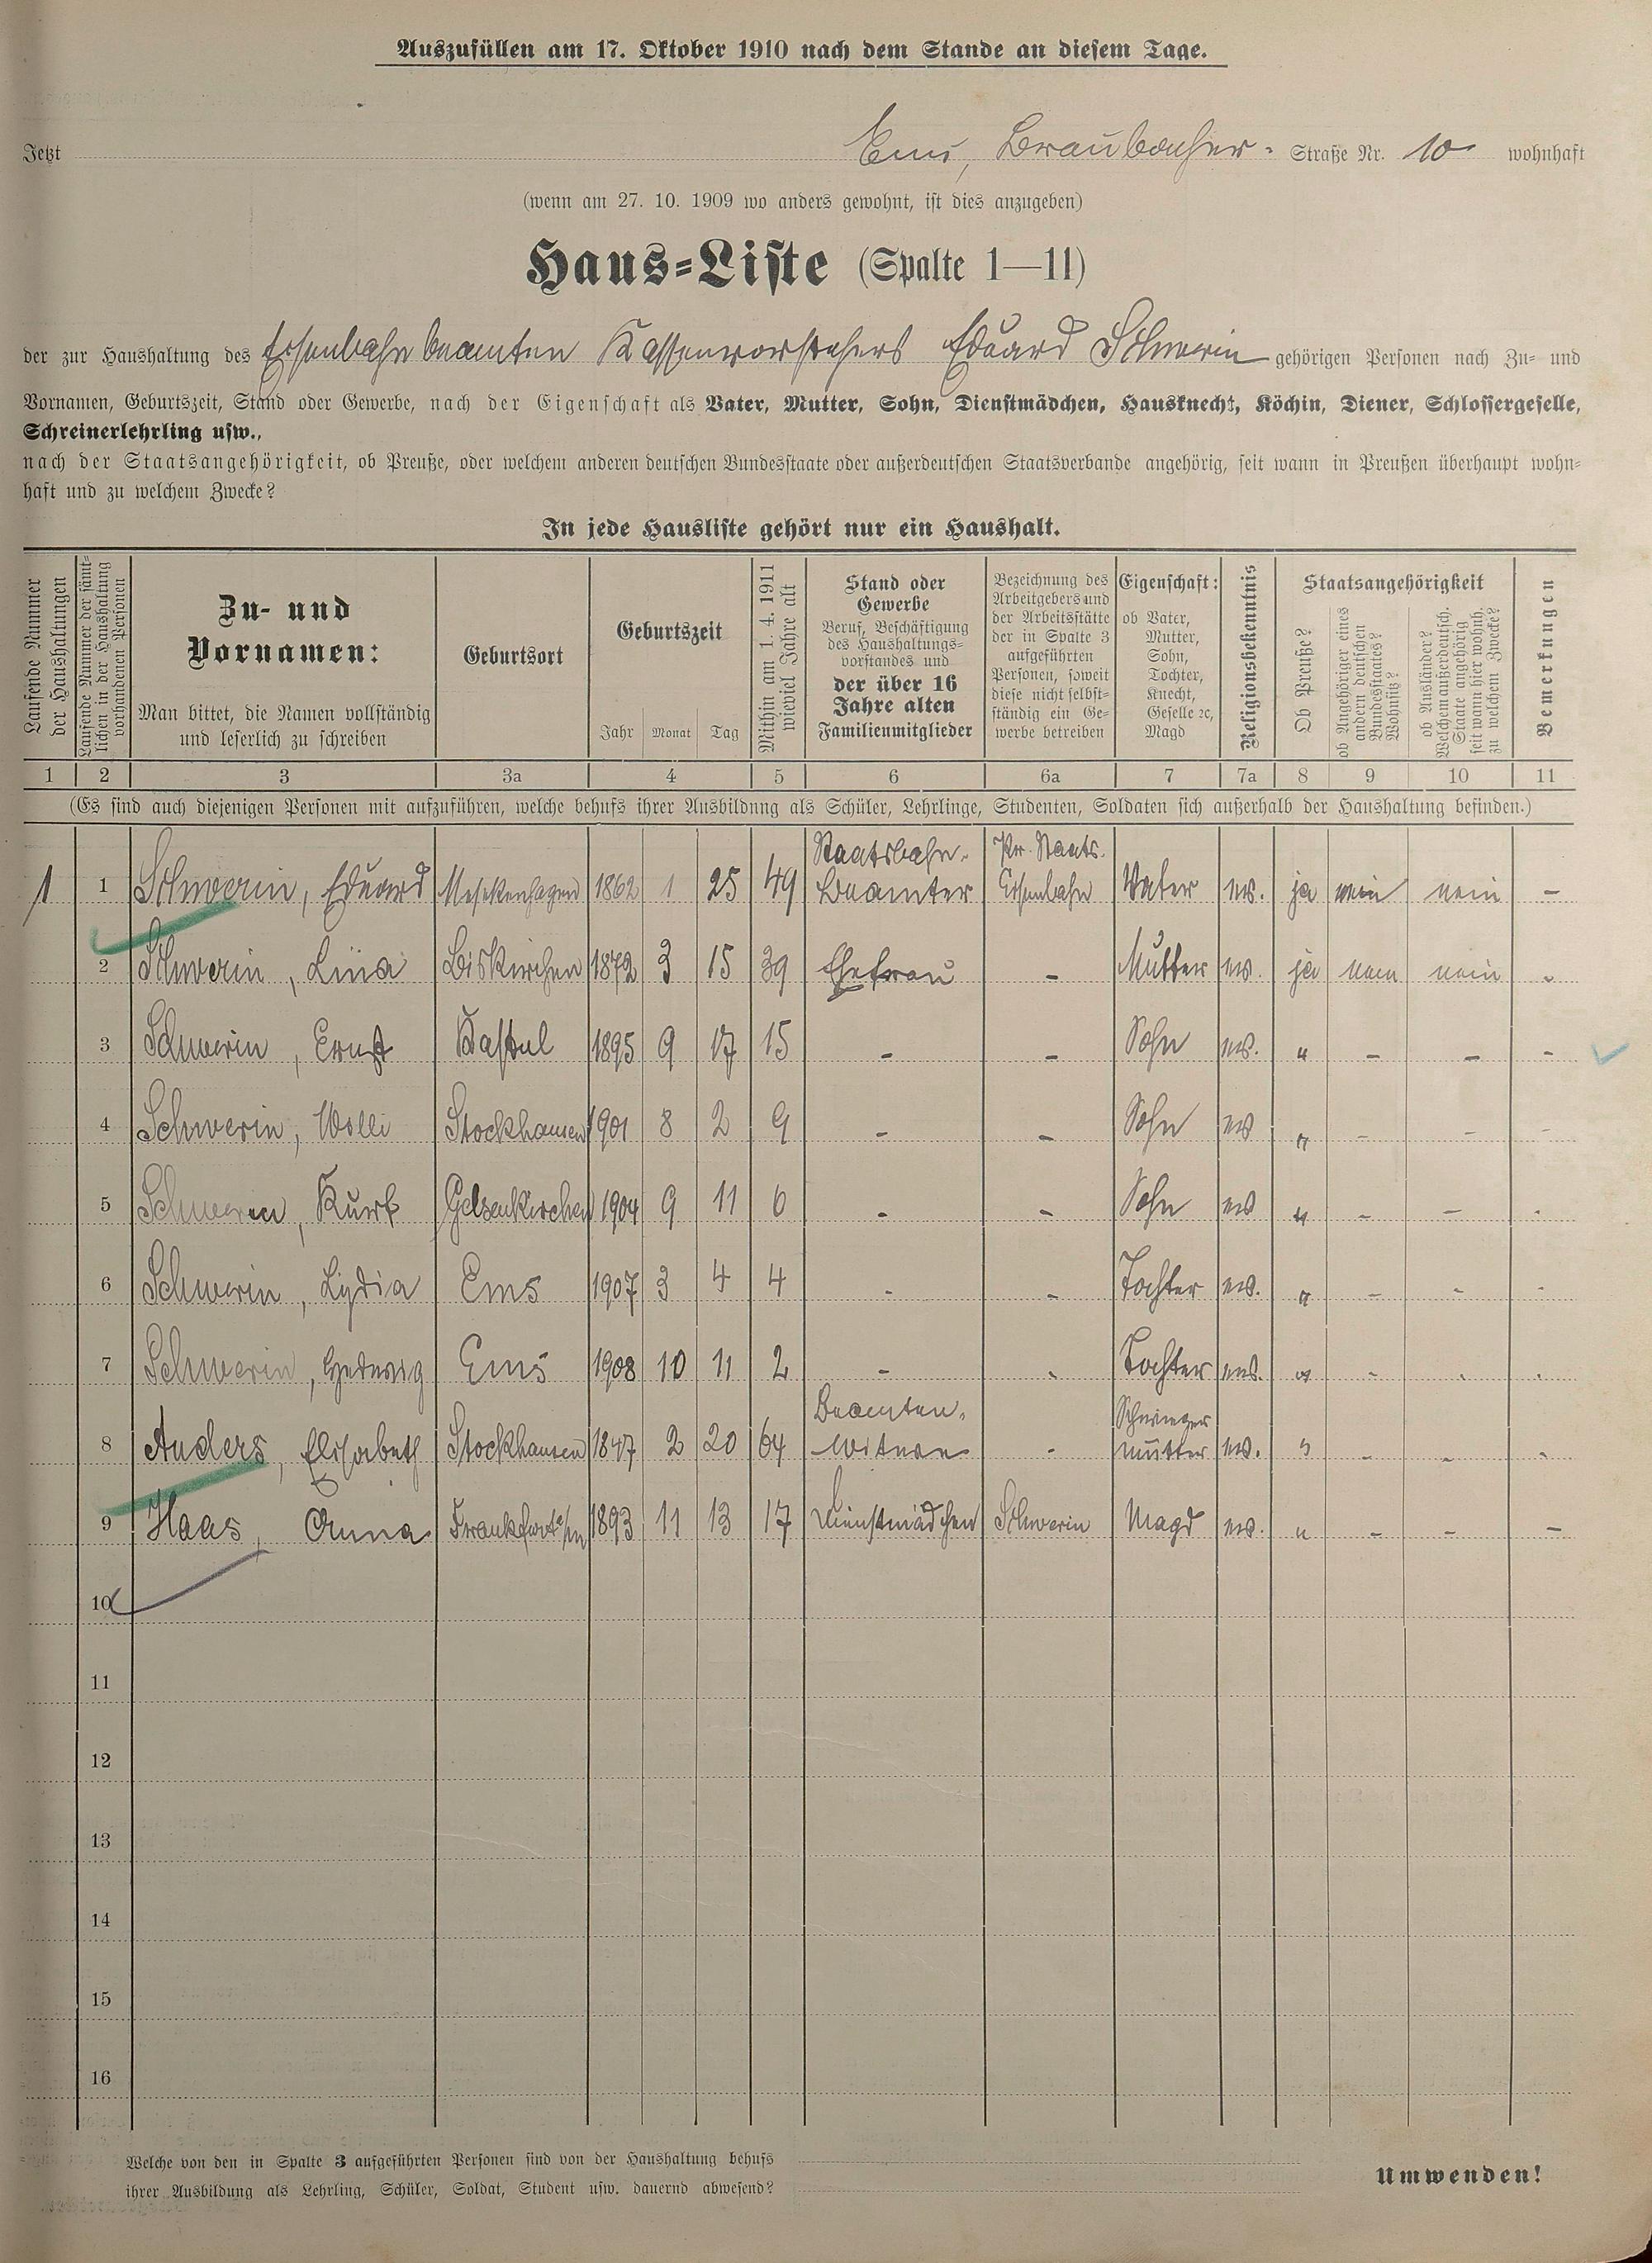 Auszufüllen am 17. Oktober 1910 nach dem Stande an diesem Tage.
Jetzt Ems, Braubacher- Straße Nr. 10 wohnhaft
(wenn am 27. 10. 1909 wo anders gewohnt, ist dies anzugeben)
Haus-Liste (Spalte 1—11)
der zur Haushaltung des Eisenbahnbeamten Kassenvorstehers Eduard Schwerin gehörigen Personen nach Zu- und
Vornamen, Geburtszeit, Stand oder Gewerbe, nach der Eigenschaft als Vater, Mutter, Sohn, Dienstmädchen, Hausknecht, Köchin, Diener, Schlossergeselle,
Schreinerlehrling usw.,
nach der Staatsangehörigkeit, ob Preuße, oder welchem anderen deutschen Bundesstaate oder außerdeutschen Staatsverbande angehörig, seit wann in Preußen überhaupt wohn-
haft und zu welchem Zwecke?
In jede Hausliste gehört nur ein Haushalt.
Laufende Nummer der Haushaltungen
Laufende Nummer der sämt-lichen in der Haushaltung vorhandenen Personen
Zu- und
Vornamen:
Man bittet, die Namen vollständig
und leserlich zu schreiben
Geburtsort
Geburtszeit
Jahr Monat Tag
Mithin am 1. 4. 1911 wieviel Jahre alt
Stand oder
Gewerbe
Beruf, Beschäftigung
des Haushaltungs-
vorstandes und
der über 16
Jahre alten
Familienmitglieder
Bezeichnung des
Arbeitgebers und
der Arbeitsstätte
der in Spalte 3
aufgeführten
Personen, soweit
diese nicht selbst-
ständig ein Ge-
werbe betreiben
Eigenschaft:
ob Vater,
Mutter,
Sohn,
Tochter,
Knecht,
Geselle ꝛc,
Magd
Religionsbekenntnis
Staatsangehörigkeit
Ob Preuße?
ob Angehöriger eines andern deutschen Bundesstaates? Wohnsitz?
ob Ausländer? Welchem außerdeutsch. Staate angehörig seit wann hier wohnh. zu welchem Zwecke?
Bemerkungen
1 2 3 3a 4 5 6 6a 7 7a 8 9 10 11
(Es sind auch diejenigen Personen mit aufzuführen, welche behufs ihrer Ausbildung als Schüler, Lehrlinge, Studenten, Soldaten sich außerhalb der Haushaltung befinden.)
1 1 Schwerin, Eduard Mesekenhagen 1862 1 25 49 Staatsbahn-Beamter Pr. Staats-Eisenbahn Vater ev. ja nein nein –
2 Schwerin, Lina Biskirchen 1872 3 15 39 Ehefrau – Mutter ev. ja nein nein -
3 Schwerin, Ernst 1895 9 17 15 – – Sohn ev. " – – -
4 Schwerin, Willi Stockhausen 1901 8 2 9 – – Sohn ev " – – -
5 Schwerin, Kurt Gelsenkirchen 1904 9 11 6 - - Sohn ev " – – -
6 Schwerin, Lydia Ems 1907 3 4 4 - - Tochter ev. " – - -
7 Schwerin, Hedwig Ems 1908 10 11 2 – - Tochter ev. " - - -
8 Anders, Elisabeth Stockhausen 1847 2 20 64 Beamten-witwe - Schwiegermutter ev. " - - -
9 Haas, Anna Frankfurt a/M 1893 11 13 17 Dienstmädchen Schwerin Magd ev. " – – –
10
11
12
13
14
15
16
Welche von den in Spalte 3 aufgeführten Personen sind von der Haushaltung behufs
ihrer Ausbildung als Lehrling, Schüler, Soldat, Student usw. dauernd abwesend?
Umwenden!